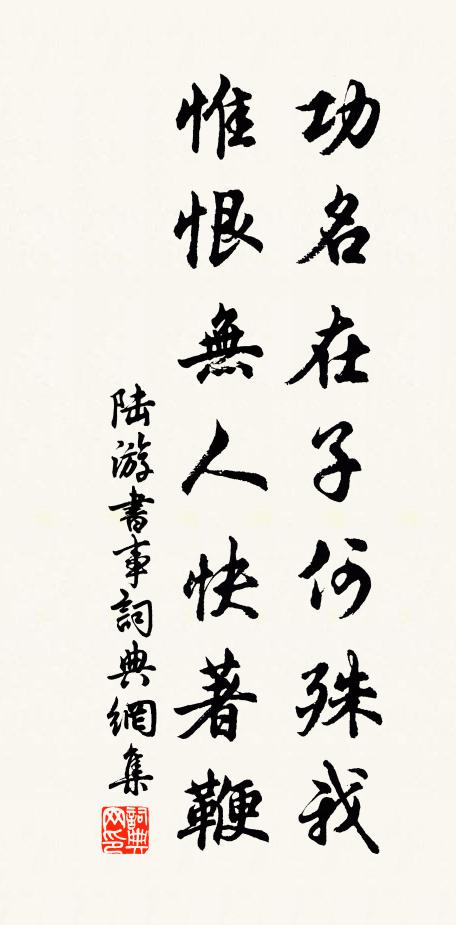 功名在子何殊我
惟恨無人快著鞭
陆游書事詞典網集
詞典网印